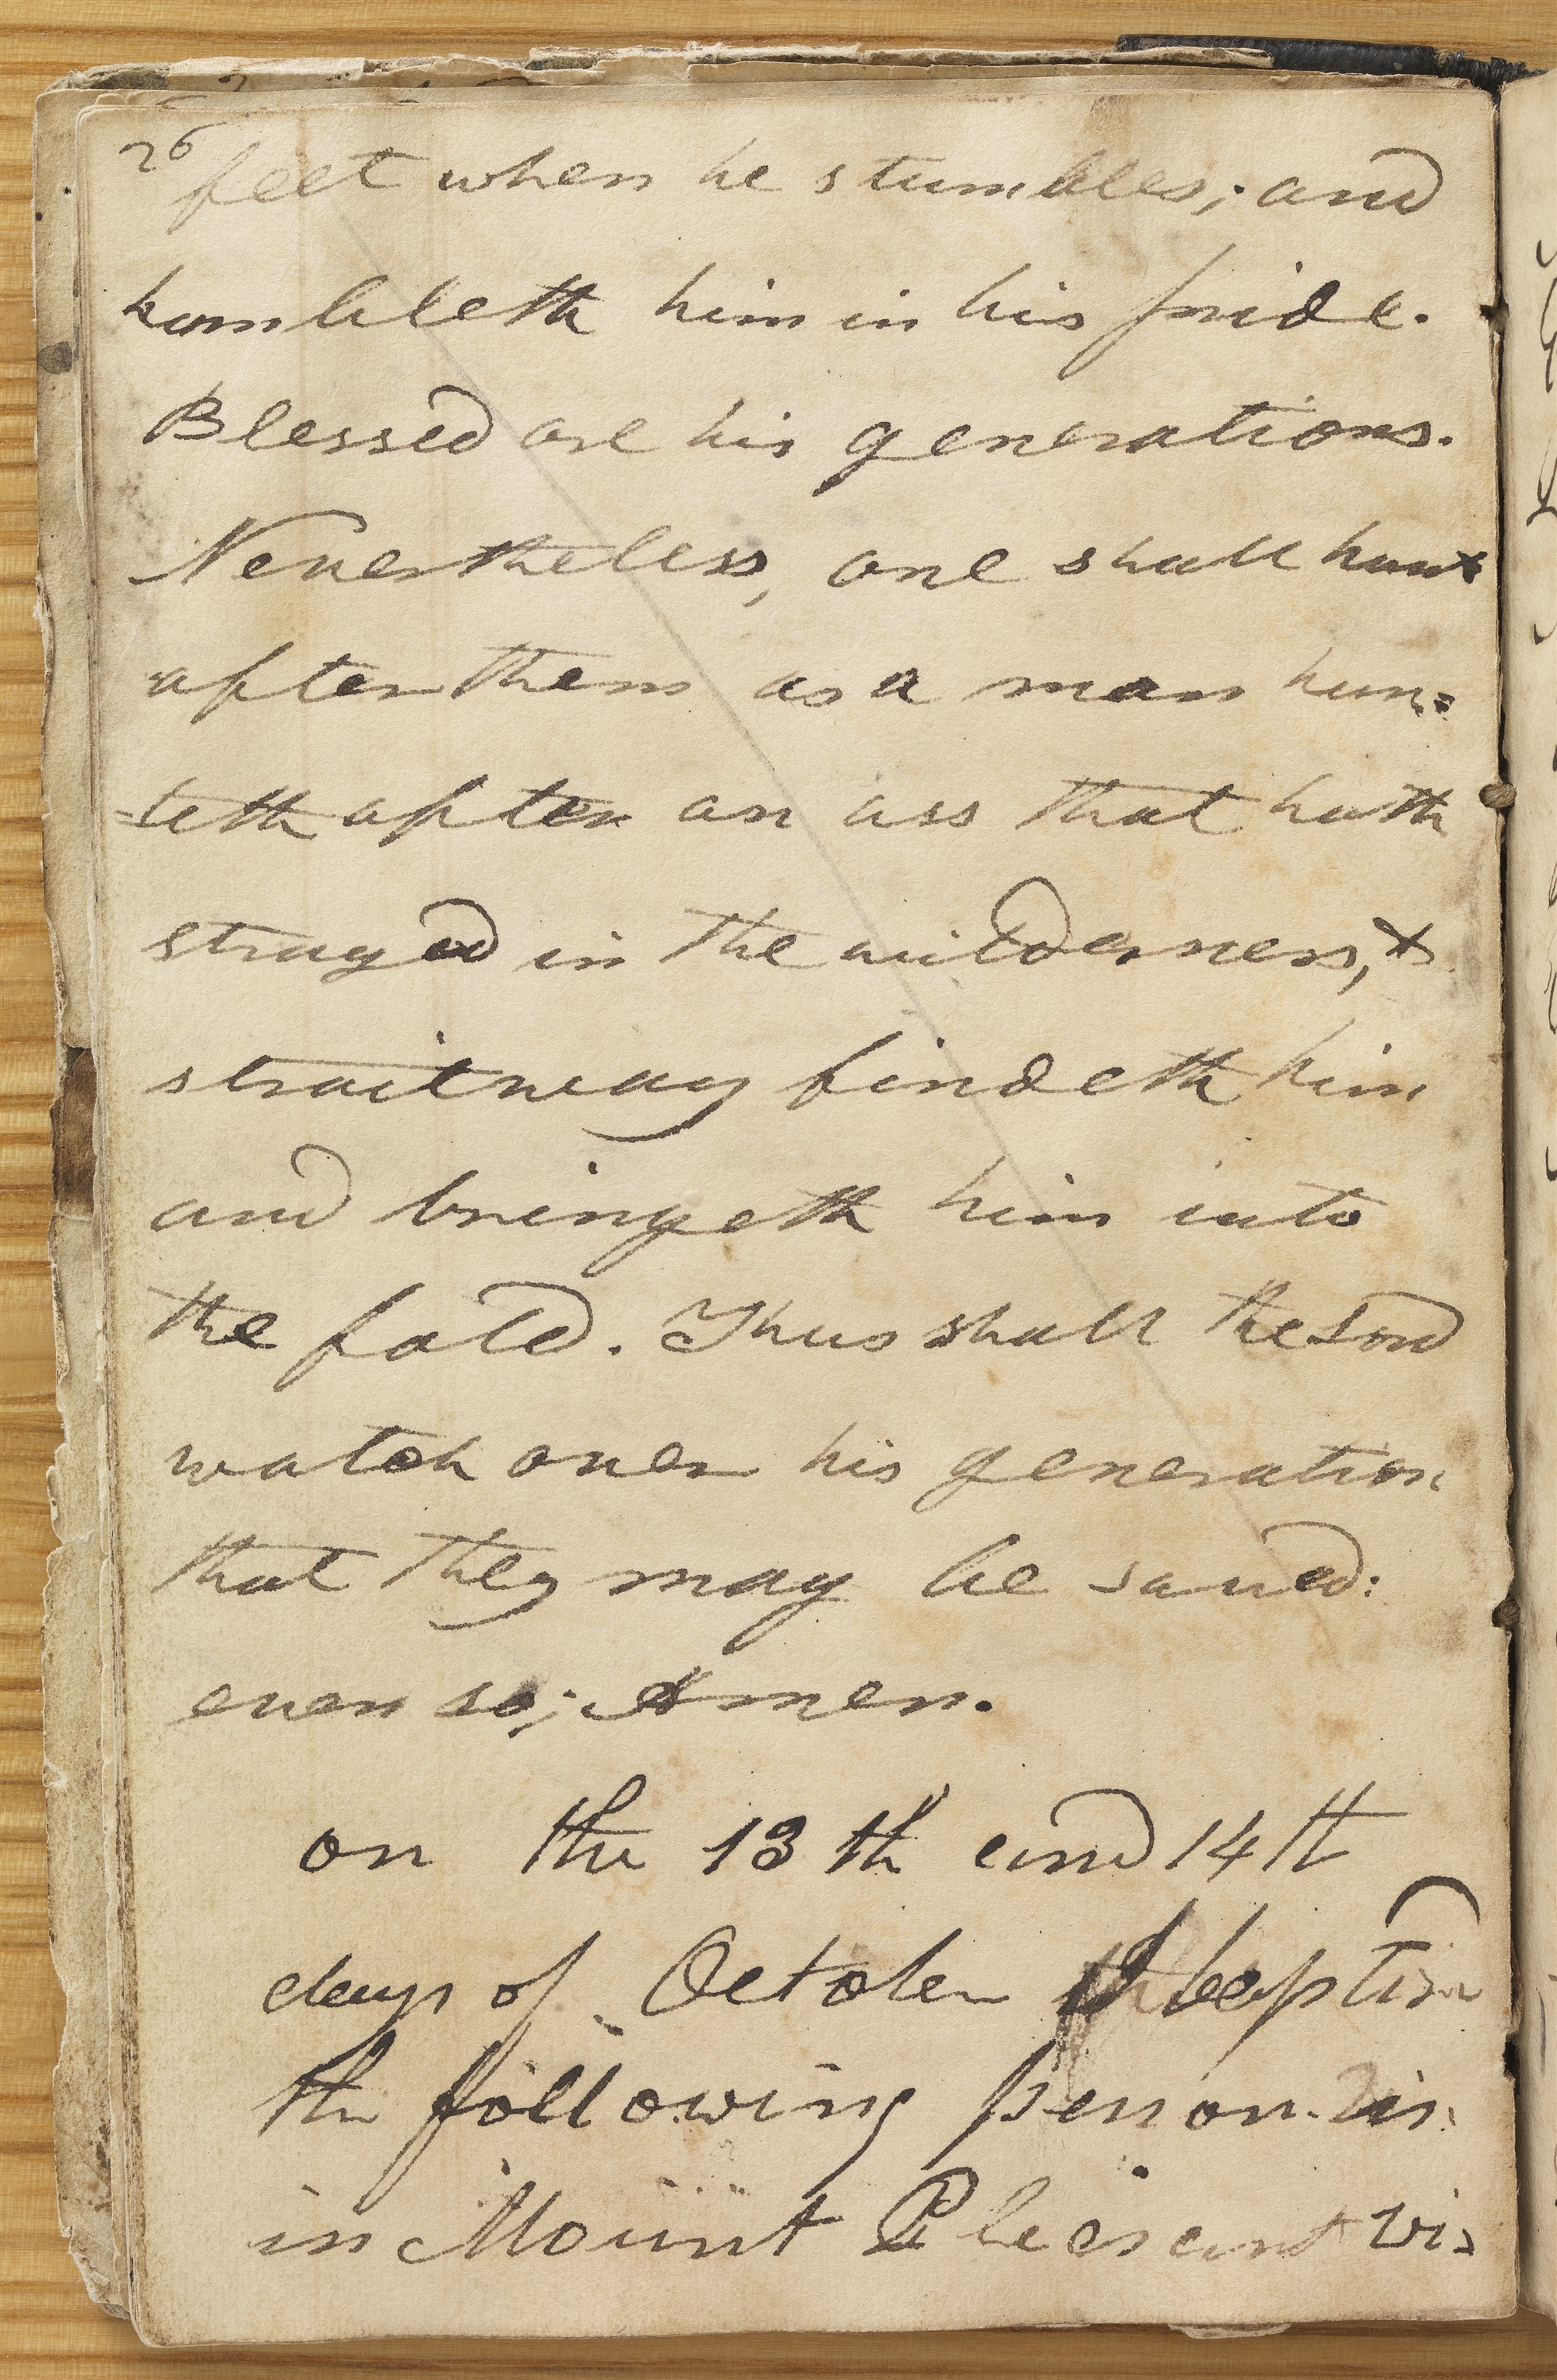 26
feet when he stumbles; and
humbleth him in his pride.
Blessed are his generations.
Nevertheless, one shall hunt
after them as a man hun=
=teth after an ass that hath
strayed in the wilderness, &
straitway findeth him
and bringeth him into
the fold. Thus shall the Lord
watch over his generation
that they may be saved:
even so; Amen.
on the 13th and 14th
days of October I baptised
the following person
in Mount Pleasant viz